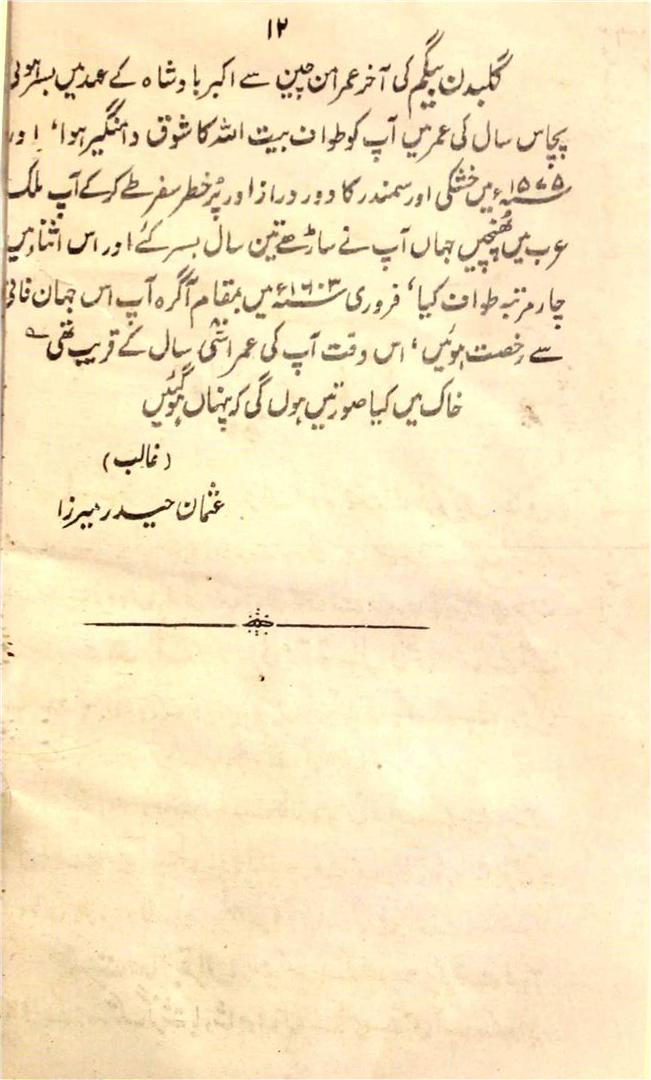 ۱۲
گلبدن بیگم کی آخر عمر امن چین سے اکبر بادشاہ کے عہد میں بسر ہوئی
پچاس سال کی عمر میں آپ کو طواف بیت اللہ کا شوق دامنگیر ہوا، اور
۱۵۷۵ء میں خشکی اور سمندر کا دور دراز اور پُر خطر سفر طے کر کے آپ ملک
عرب میں پہنچیں جہاں آپ نے ساڑھے تین سال بسر کئے اور اس اثناء میں
چار مرتبہ طواف کیا، فروری ۱۶۰۳ء میں بمقام آگرہ آپ اس جہان فانی
سے رخصت ہوئیں، اس وقت آپ کی عمر اسّی سال کے قریب تھی ؎
خاک میں کیا صورتیں ہوں گی کہ پنہاں ہو گئیں
(غالب)
عثمان حیدر میرزا